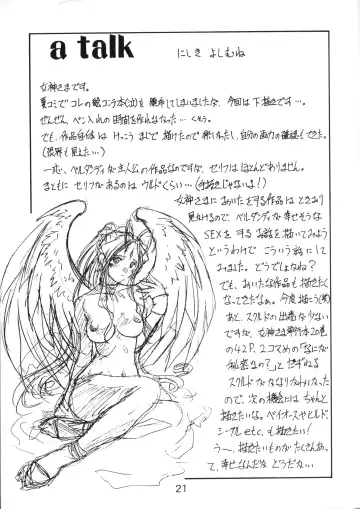 a talk
にしき よしむね
女神さまです。
夏コミでコレの鉛コンテ本(泣)を頒布してしまいましたが、今回は下描きです…。
ぜんぜん、ペン入れの時間を作れなかった…くそう。
でも、作品自体はけっこうまじで描けたので楽しかったし、自分の画力の確認もできた。
(限界も見えた…)
一応、ベルダンディが主人公の作品なのですが、セリフはほとんどありません。
まともにセリフがあるのはウルドくらい…(手抜きじゃないよ!)
女神さまにあいたをする作品はときおり
見かけるので、ベルダンディが幸せそうな
SEXをするお話を描いてみよう
というわけでこういう話にして
みました。どうでしょかね?
でも、あいたな作品も描きたく
なってきたなぁ。今度描こう(笑)
あと、スクルドの出番が少ない
ですが、女神さま単行本20巻
の42P、2コマめの「なにが
秘密なの?」とたずねる
スクルドがかなりかわいかった
ので、次の機会にはちゃんと
描きたいな。ペイオースやヒルド、
シーグルetc.も描きたい!
うー、描きたいものがたくさんあっ
て、幸せなんだかどうだか…
21